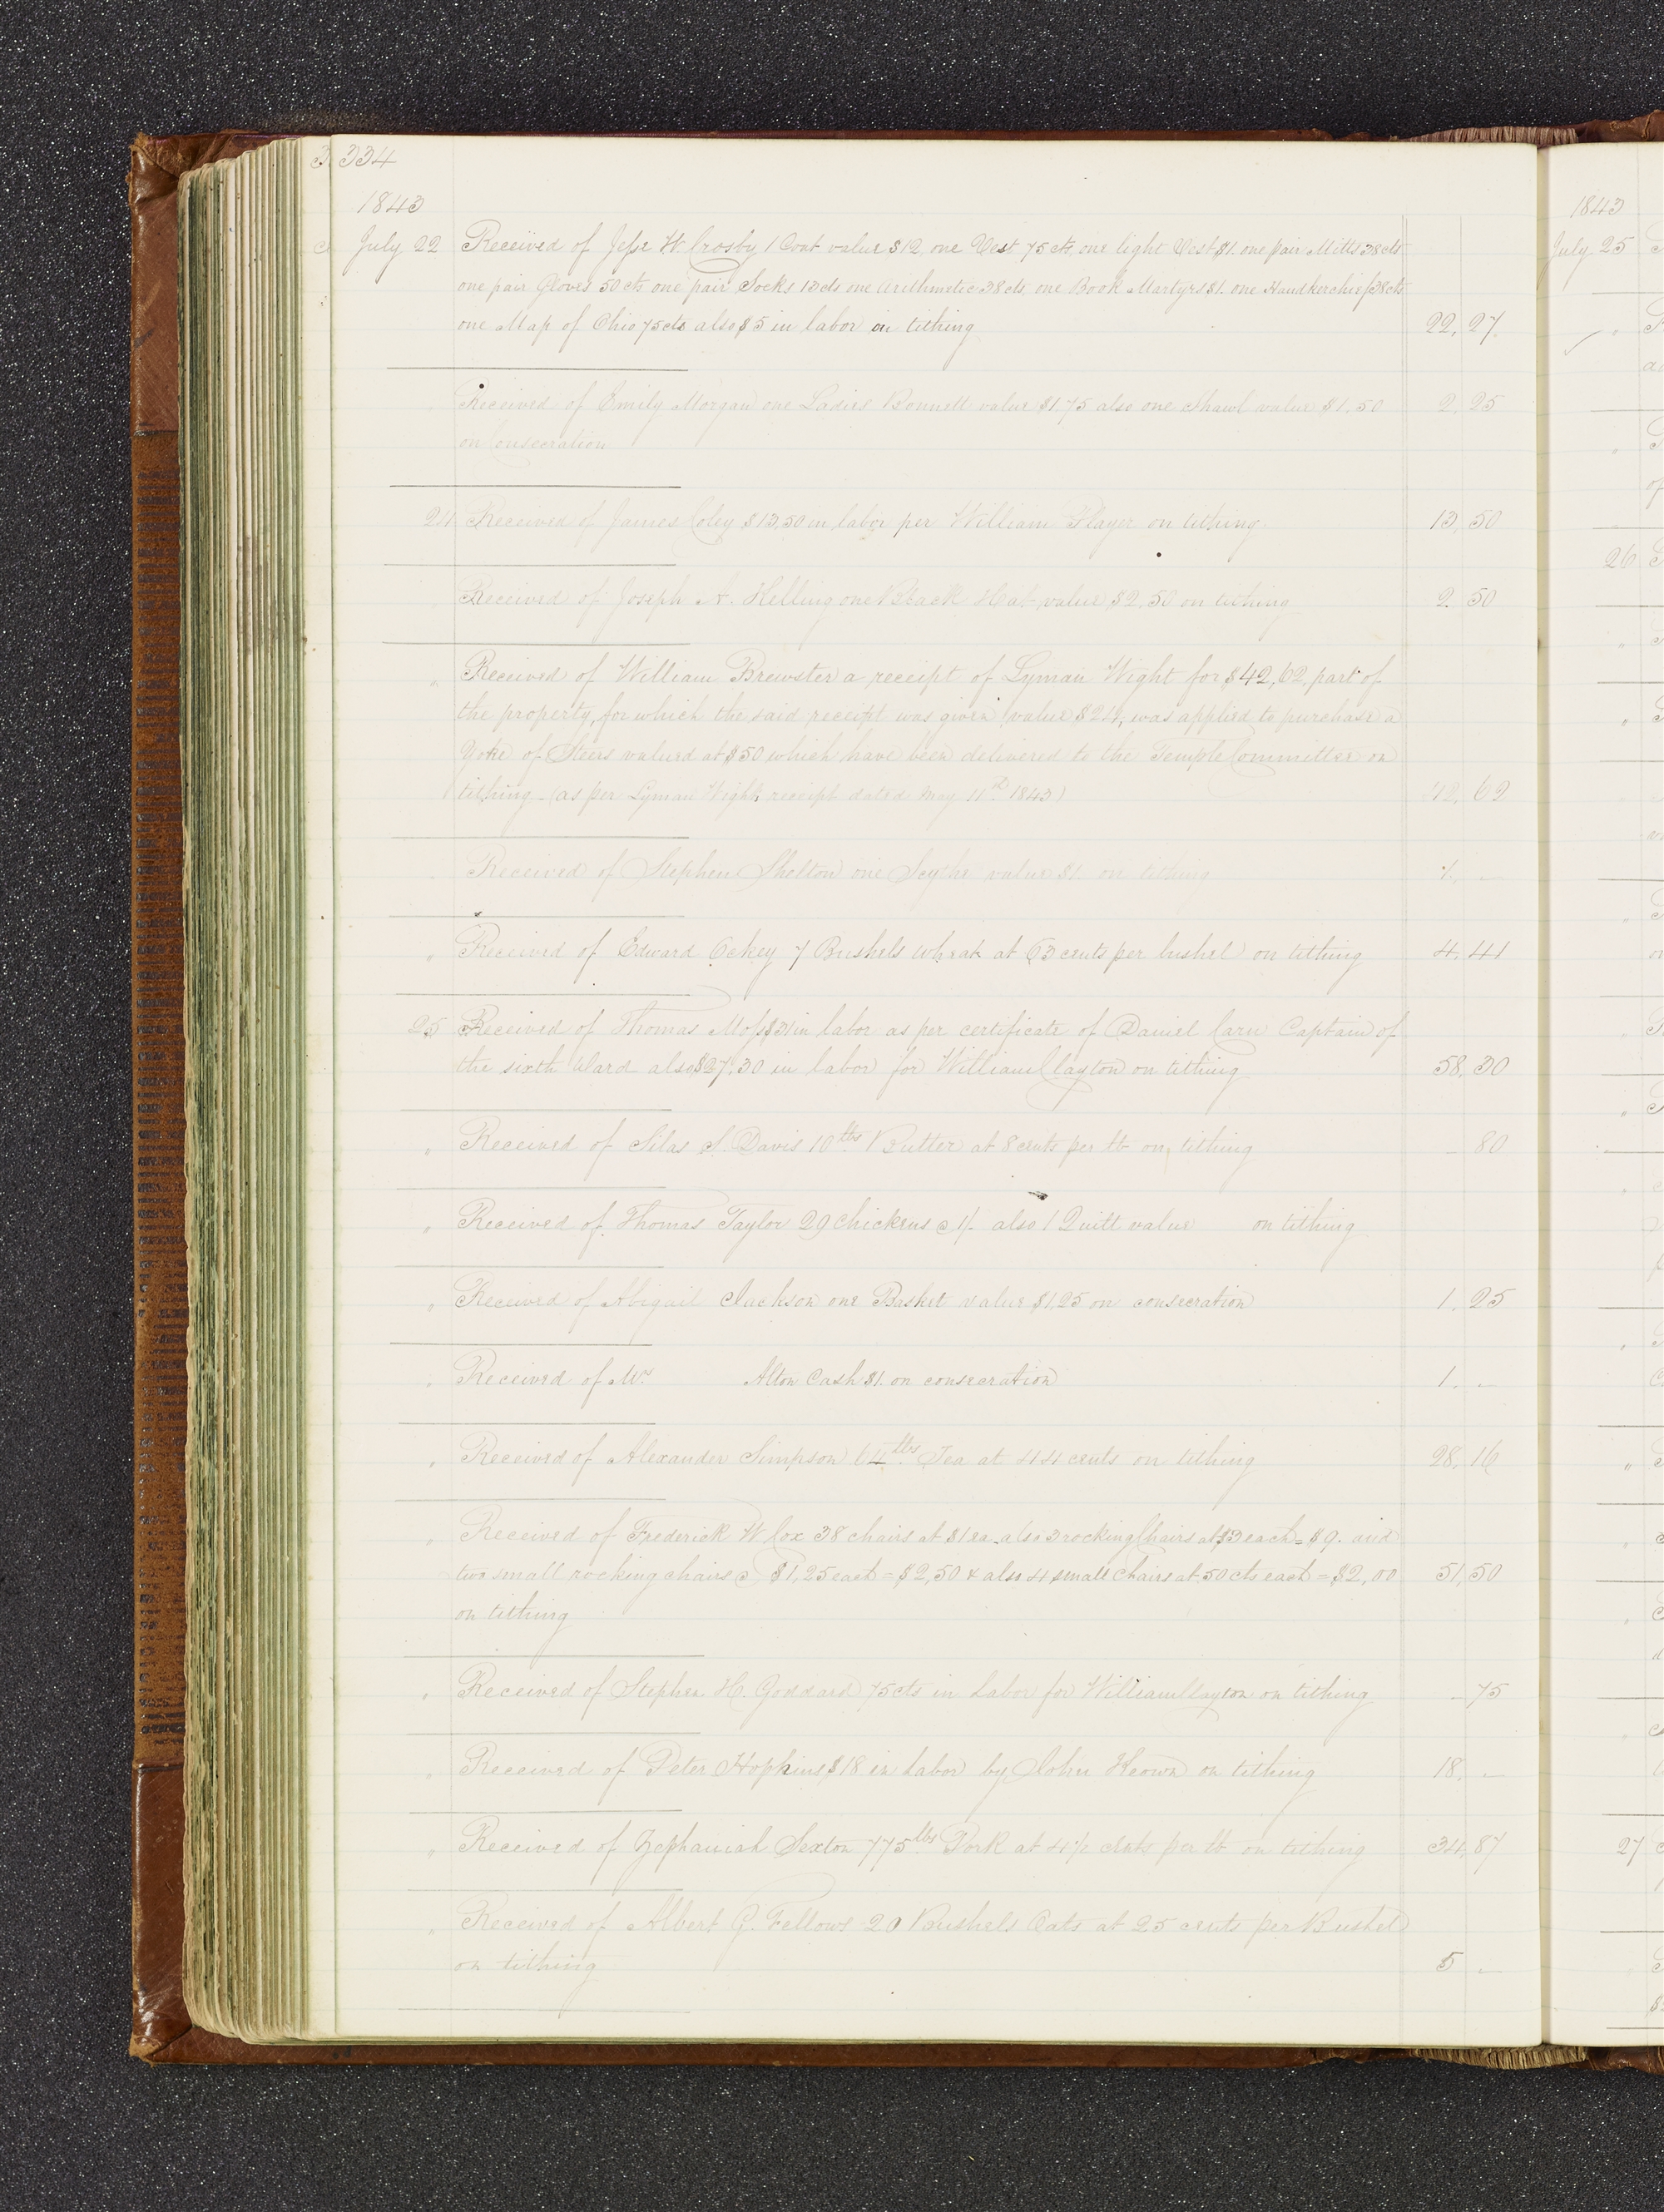 334
1843
July 22 Received of Jesse W. Crosby 1 Coat value $12 one Vest 75 cts, one light Vest $1. one pair Mitts 38 cts
one pair Gloves 50 cts one pair Socks 13 cts one Arithmetic 38 cts, one Book Martyrs $1. one Handkerchief 38 cts
one Map of Ohio 75 cts also $5 in labor on tithing 22, 27.
Received of Emily Morgan one Ladies Bonnett value $1.75 also one Shawl value $1.50 2, 25
on Consecration
24 Received of James Coley $13,50 in labor per William Player on tithing. 13, 50
Received of Joseph A. Kelling one Black Hat value $2.50 on tithing 2. 50
" Received of William Brewster a receipt of Lyman Wight for $42,62, part of
the property, for which the said receipt was given, value $24, was applied to purchase a
Yoke of Steers valued at $50 which have been delivered to the Temple Committee on
tithing - (as per Lyman Wight receipt dated May 11th 1843) 42, 62
Received of Stephen Shelton one Scythe value $1. on tithing 1. –
" Received of Edward Ockey 7 Bushels Wheat at 63 cents per bushel on tithing 4. 41
25 Received of Thomas Moss $31 in labor as per certificate of Daniel Carn Captain of
the sixth Ward also $27.30 in labor for William Clayton on tithing 58. 30
" Received of Silas S. Davis 10 lbs Butter at 8 cents per lb on tithing – 80
" Received of Thomas Taylor 29 Chickens @ 1/. also 1 Quilt value on tithing
" Received of Abigail Jackson one Basket value $1,25 on consecration 1. 25
" Received of Mrs Alton Cash $1. on consecration 1. –
" Received of Alexander Simpson 64 lbs Tea at 44 cents on tithing 28, 16
" Received of Frederick W. Cox 38 chairs at $1 ea. also 3 rocking Chairs at $3 each = $9. and
two small rocking chairs @ $1,25 each = $2,50 & also 4 small Chairs at 50 cts each = $2,00 51, 50
on tithing
" Received of Stephen H. Goddard 75 cts in Labor for William Clayton on tithing – 75
" Received of Peter Hopkins $18 in Labor by John Keown on tithing 18. –
" Received of Zephaniah Sexton 775 lbs Pork at 4 1/2 cents per lb on tithing 34, 87
" Received of Albert G. Fellows 20 Bushels Oats at 25 cents per Bushel
on tithing 5 –
1843
July 25
"
"
26
"
"
"
"
"
"
"
"
"
"
27